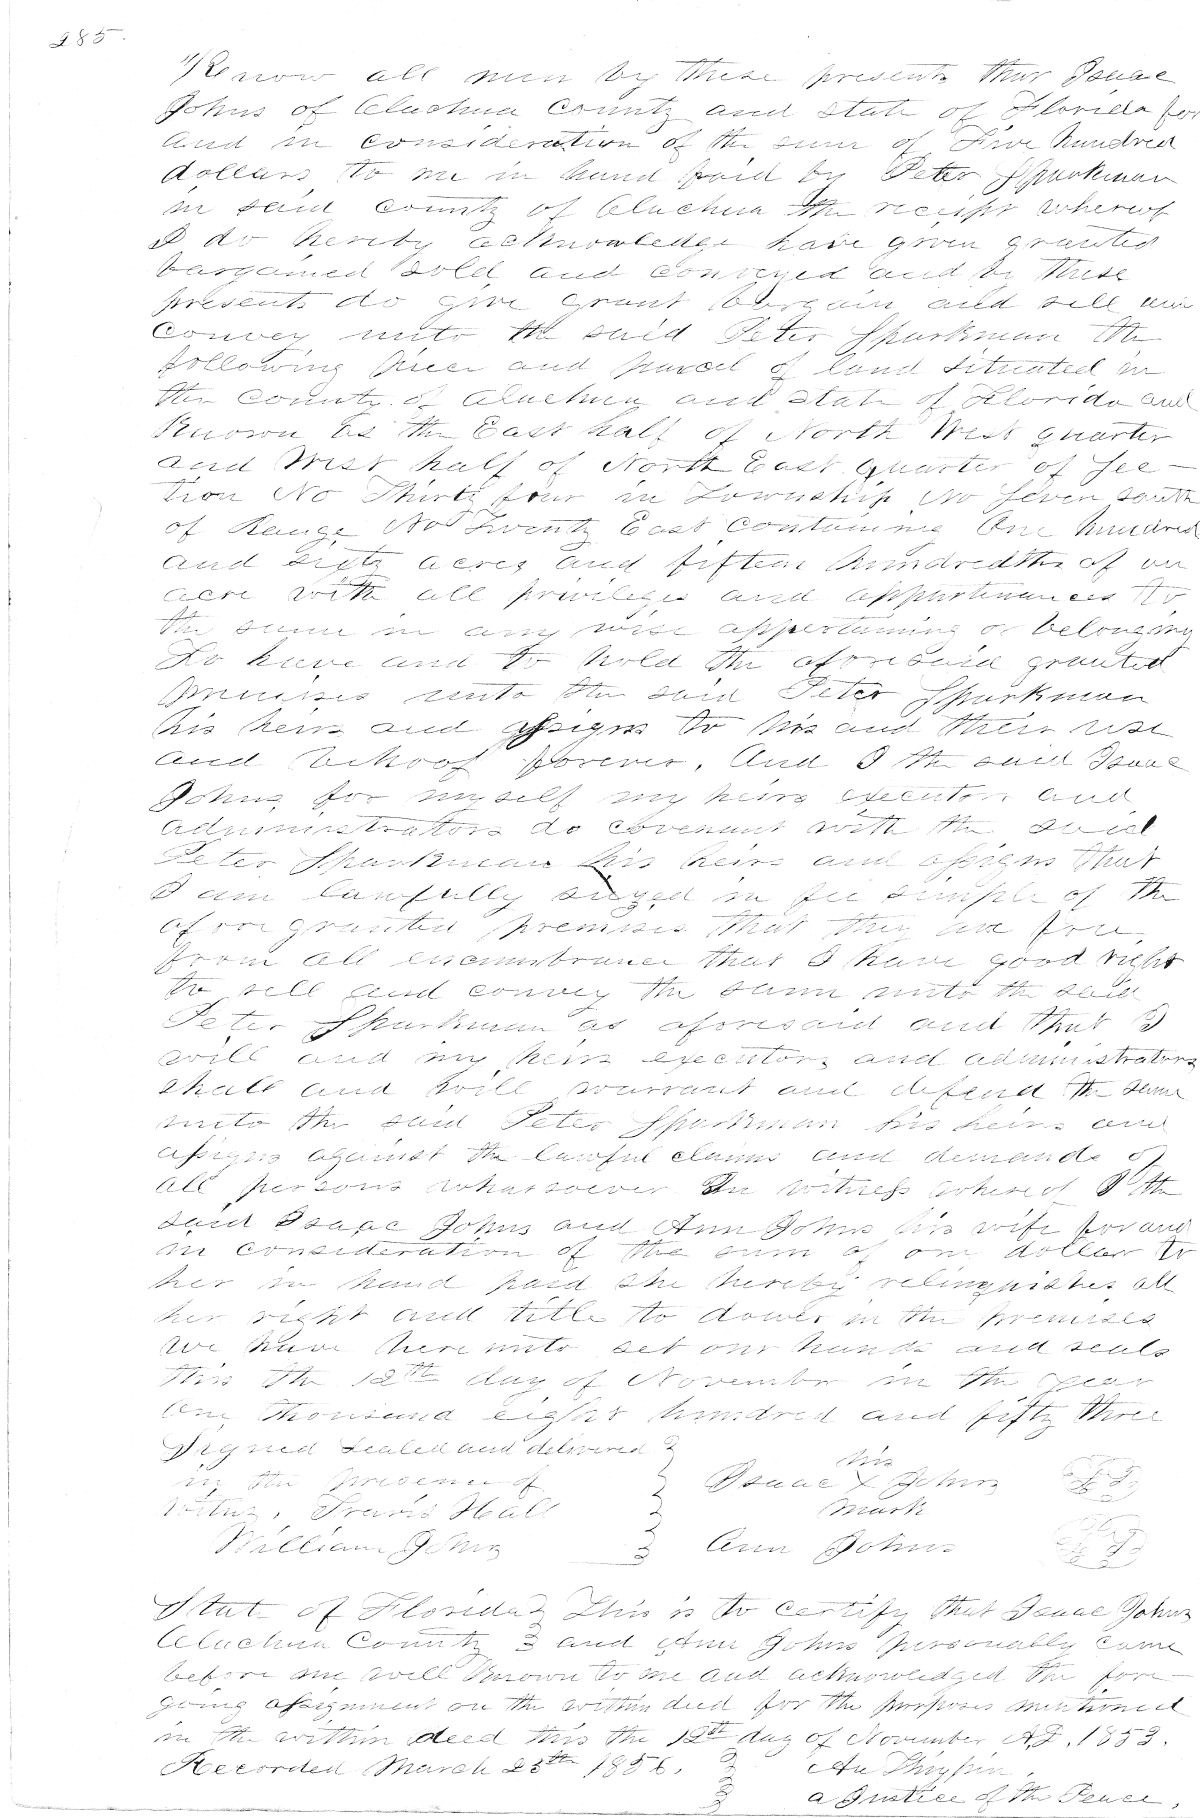 285.
Know all men by these presents that Isaac
Johns of Alachua County and State of Florida for
and in consideration of the sum of Five hundred
dollars to me in hand paid by Peter Sparkman
in said county of Alachua the receipt whereof
I do hereby acknowledge have given granted
bargained sold and conveyed and by these
presents do give grant bargain and sell and
convey unto the said Peter Sparkman the
following piece and parcel of land situated in
the county of Alachua and State of Florida and
Known as the East half of North West quarter
and West half of North East quarter of Sec-
tion No Thirty four in Township No Seven South
of Range No Twenty East containing One hundred
and sixty acres and fifteen hundredths of an
acre with all privileges and appurtenances to
the same in any wise appertaining or belonging
To have and to hold the aforesaid granted
premises unto the said Peter Sparkman
his heirs and assigns to his and their use
and behoof forever. And I the said Isaac
Johns for myself my heirs executors and
administrators do covenant with the said
Peter Sparkman his heirs and assigns that
I am lawfully siezed in fee simple of the
afore granted premises that they are free
from all encumbrance that I have good right
to sell and convey the same unto the said
Peter Sparkman as aforesaid and that I
will and my heirs executors and administrators
shall and will warrant and defend the same
unto the said Peter Sparkman his heirs and
assigns against the lawful claims and demands of
all persons whatsoever In witness whereof I the
said Isaac Johns and Ann Johns his wife for and
in consideration of the sum of one dollar to
her in hand paid she hereby relinquishes all
her right and title to dower in the premises
we have here unto set our hands and seals
this the 12th day of November in the year
One thousand eight hundred and fifty three
Signed Sealed and delivered
in the presence of
Witns, Travis Hall
William Johns
his
Isaac X Johns
mark
Ann Johns
State of Florida This is to certify that Isaac Johns
Alachua County and Ann Johns personally came
before me well known to me and acknowledged the fore-
going assignment on the within deed for the purposes mentioned
in the within deed this the 12th day of November AD. 1853.
Recorded March 25th 1856.
a Justice of the Peace,